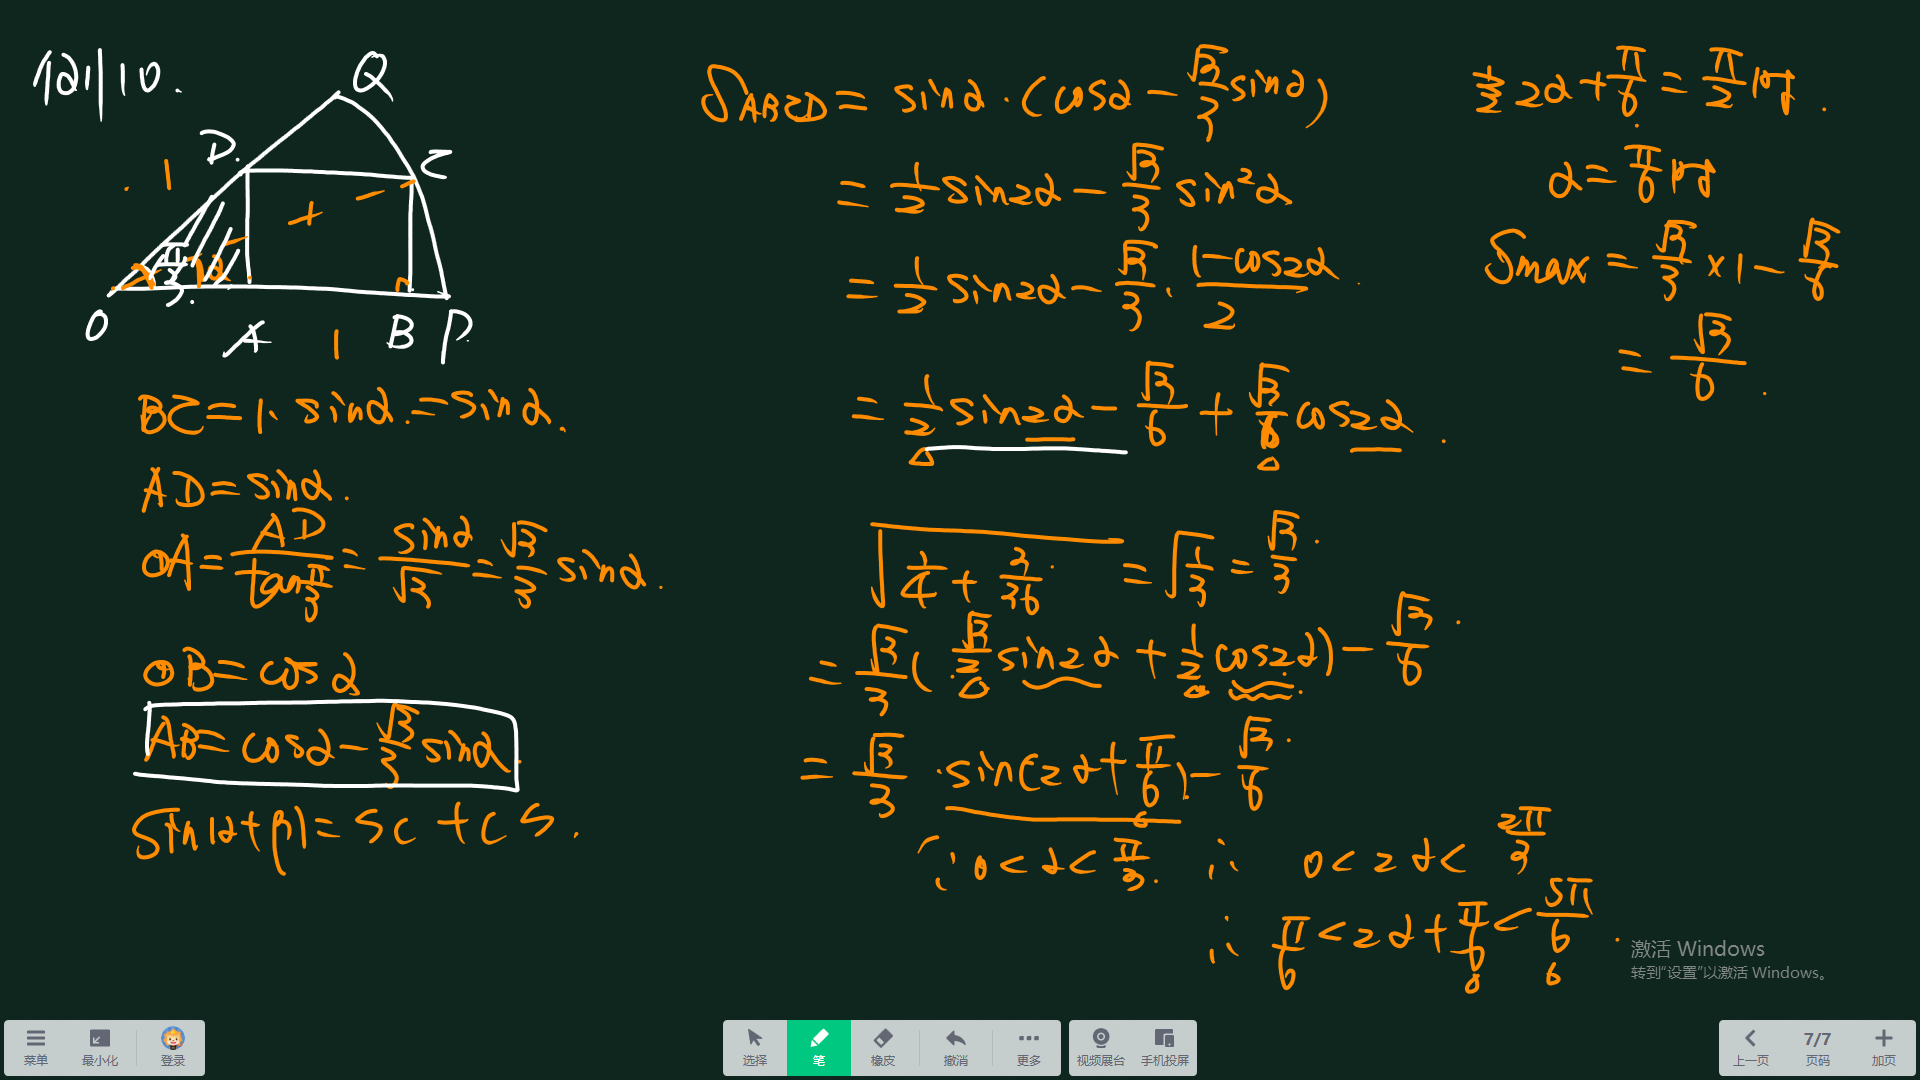 121|10.
Q
D.
C
1
π/3
O
A
1
B
P
BC=1·sinα.=sinα.
AD=sinα.
OA=AD/tan π/3=sinα/√3=√3/3 sinα.
OB=cosα
AB=cosα-√3/3 sinα.
Sin(α+β)=SC+CS.
S ABCD = sinα·(cosα-√3/3 sinα)
=1/2 sin2α-√3/3 sin²α
=1/2 sin2α-√3/3·(1-cos2α)/2
=1/2 sin2α-√3/6+√3/6 cos2α.
√(1/4+3/36)=√(1/3)=√3/3.
=√3/3(√3/2 sin2α+1/2 cos2α)-√3/6.
=√3/3·sin(2α+π/6)-√3/6.
∵0<α<π/3. ∴ 0<2α<2π/3
∴ π/6<2α+π/6<5π/6.
当2α+π/6=π/2时.
α=π/6时
Smax=√3/3×1-√3/6
=√3/6.
激活 Windows
转到“设置”以激活 Windows。
菜单
最小化
登录
选择
笔
橡皮
撤消
更多
视频展台
手机投屏
上一页
7/7
页码
加页